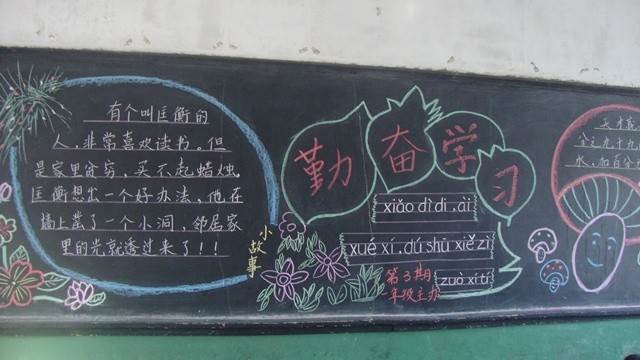 有个叫匡衡的
人,非常喜欢读书。但
是家里穷穷,买不起蜡烛,
匡衡想出一个好办法,他在
墙上凿了一个小洞,邻居家
里的光就透过来了!!
小故事
勤奋学习
xiǎo dì di ,ài
xué xí ,dú shū xiě zì
zuò xí tí
第3期
一年级主办
分之九十九
水,和百分